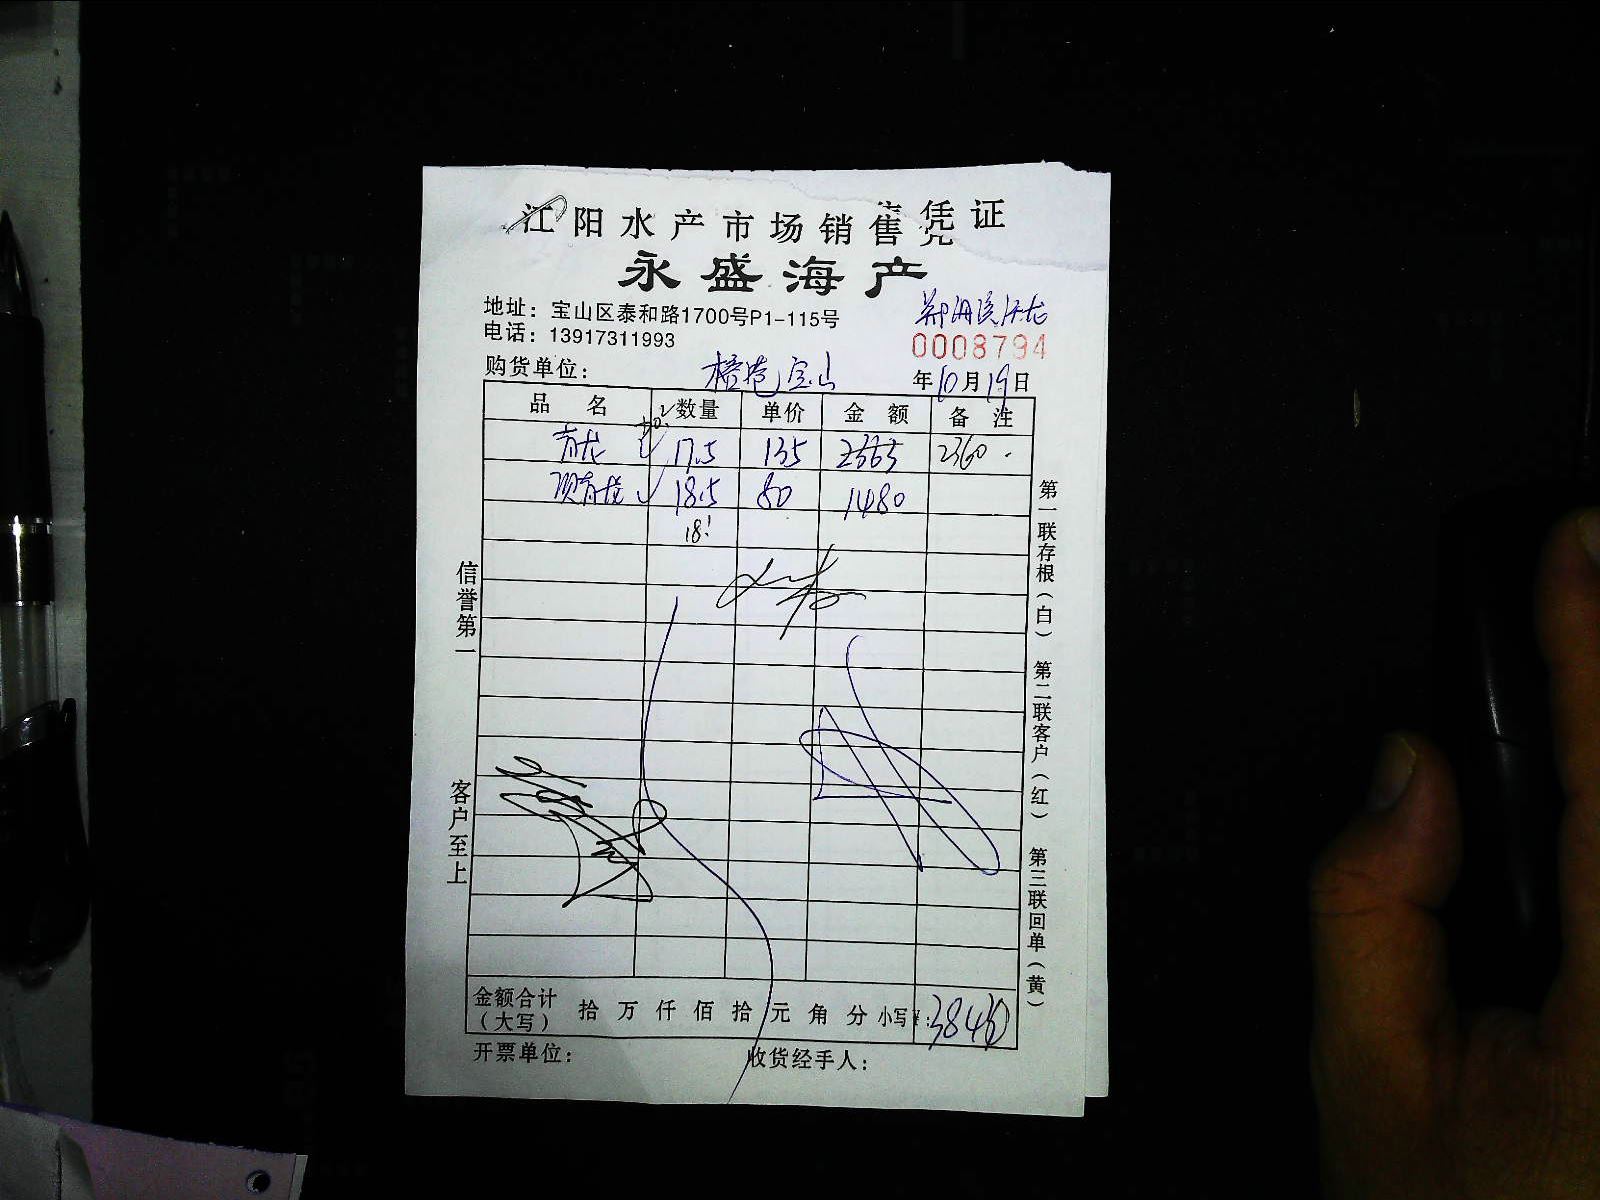 江阳水产市场销售凭证
永盛海产
地址：宝山区泰和路1700号P1-115号
电话：13917311993
0008794
购货单位： 宝山 年10月19日
品名 数量 单价 金额 备注
青龙 17.5 135 2363 2360
18.5 80 1480
18!
信誉第一
客户至上
第一联存根（白） 第二联客户（红） 第三联回单（黄）
金额合计（大写） 拾 万 仟 佰 拾 元 角 分 小写¥: 3840
开票单位： 收货经手人：